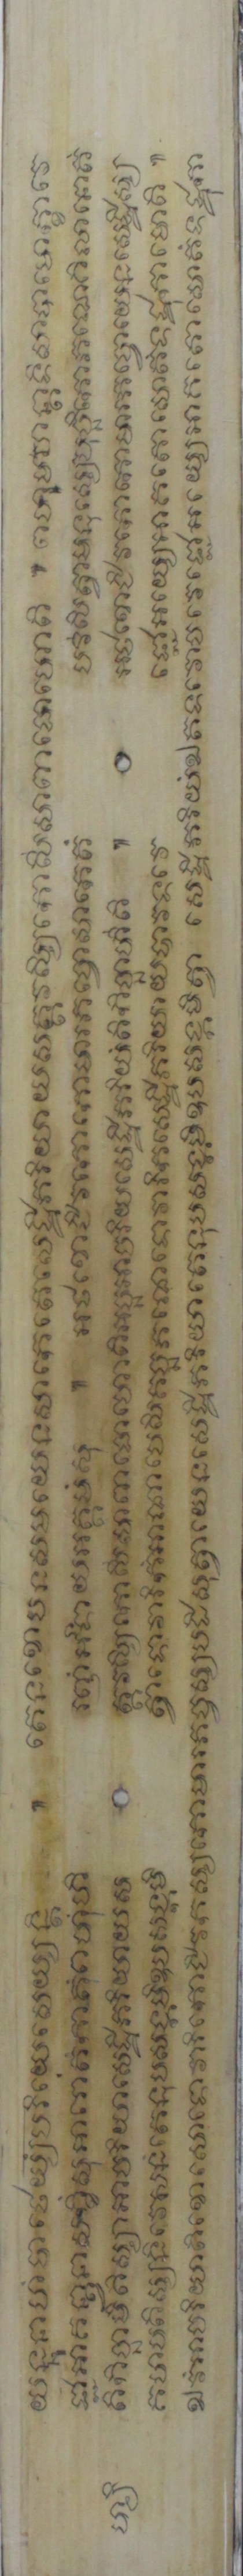 យន្នូនាហំបាថេយ្យំបរិយេសេយ្យន្តិ ៕ តេនខោបនសមយេនសាកេតេសេដ្ឋិភរិយាយសត្តវស្សិកោសីសាពាធោហោតិ ៕ ពហូមហន្តាទិសាបាមោក្ខាវេ
ជ្ជាអាគន្ត្វានាសក្ខិំសុអរោគំកាតុំពហុំហិ រញ្ញំអាទាយអគមំសុ ៕ អថខោជីវកោកោមារភច្ចោសាកេតំ បវិសិត្វាមនុស្សេបុច្ឆិកោភណេគិលានោកំ
តិកិច្ឆាមីតិឯស្សាអាចរិយាសេដ្ឋិភរិយាយស ត្តវស្សិកោសីសាពាធោហោតិគច្ឆអាចរិយសេដ្ឋិភរិយំតិកិច្ឆាហីតិ ៕ អថខោជីវកោកោមារភច្ចោយេនសេដ្ឋិស្ស
គហបតិស្សនិវេសនំតេនុបសង្កមិឧបសង្កមិ ត្វាទោវារិកំអាណាបេសិគច្ឆភណេទោវារិកសេដ្ឋិភរិយាយបាវទវេ ជ្ជោអយ្យេអាគតោសោតំទដ្ឋុកាមោតិ ៕
ឯវំអាចរិយាតិខោសោទោវារិកោជីវកស្សកោមារភច្ចស្សបដិសុត្វាយេនសេដ្ឋិភរិយាតេនុបសង្កមិឧបសង្កមិត្វា សេដ្ឋិភរិយំឯតទវោចវេជ្ជោអយ្យេអាគតោសោតំទដ្ឋុកា